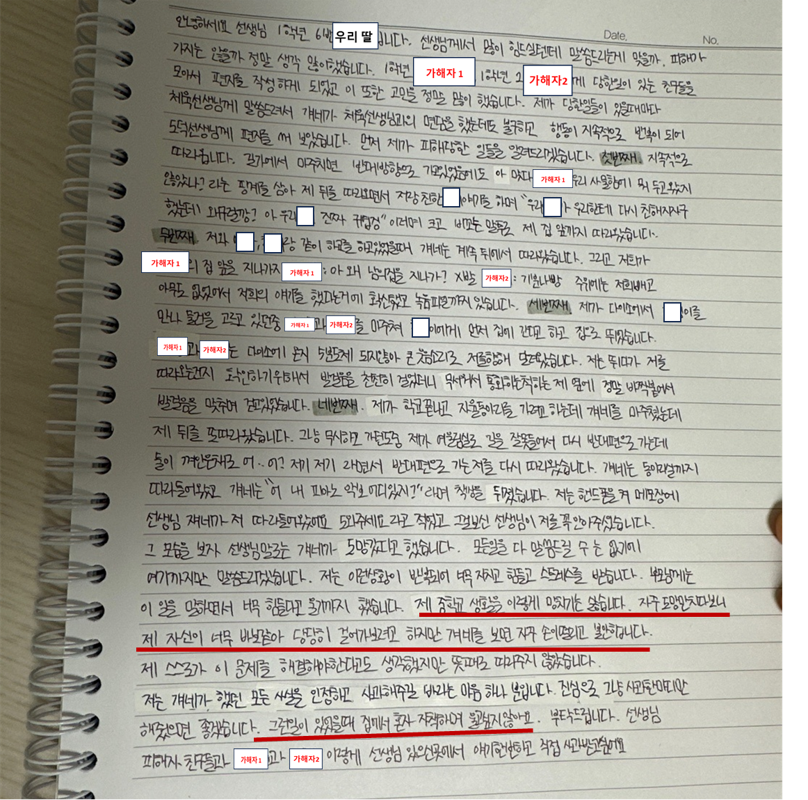 Date. No.
안녕하세요 선생님 1학년 6반 우리 딸 입니다. 선생님께서 많이 힘드실텐데 말씀드리는게 맞을까, 피해가
가지는 않을까 정말 생각 많이했습니다. 1학년 가해자 1 1학년 가해자2 에게 당한일이 있는 친구들을
모아서 편지를 작성하게 되었고 이 또한 고민을 정말 많이 했습니다. 제가 당한일들이 있을때마다
체육선생님께 말씀드려서 걔네가 체육선생님과의 면담을 했는데도 불구하고 행동이 지속적으로 반복이 되어
도덕선생님께 편지를 써 보았습니다. 먼저 제가 피해당한 일들을 알려드리겠습니다. 첫번째, 지속적으로
따라옵니다. 길가에서 마주치면 반대방향으로 가고있었음에도 아 맞다 가해자 1 우리 사물함에 뭐 두고왔지
않았나? 라는 핑계를 삼아 제 뒤를 따라오면서 저랑 친한 이야기를 하며 "우리 가 우리한테 다시 친해지자구
했는데 왜그랬을까? 아 우리 진짜 귀엽징" 이러며 크고 비꼬는 말투로 제 집 앞까지 따라왔습니다.
두번째, 저와 , 랑 같이 하교를 하고있었을때 걔네는 계속 뒤에서 따라왔습니다. 그리고 저희가
가해자 1 의 집 앞을 지나가자 가해자 1 : 아 왜 남의집을 지나가? X발 가해자2 : 기분나빠 주위에는 저희빼고
아무도 없었어서 저희의 얘기를 했다는거에 화났었고 녹음파일까지 있습니다. 세번째, 제가 다이소에서 이를
만나 물건을 고르고 있던중 가해자 1 과 가해자2 를 마주쳐 이에게 먼저 집에 간다고 하고 집으로 뛰었습니다.
가해자 1 과 가해자2 는 다이소에 온지 5분도채 되지않아 큰 웃음소리로 저를향해 달려왔습니다. 저는 뛰다가 저를
따라오는건지 확인하기위해서 발걸음을 천천히 걸었더니 무서워서 통화하는척하는 제 옆에 정말 바짝붙어서
발걸음을 맞추며 걷고있었습니다. 네번째. 제가 학교끝나고 자율동아리를 가려고 하는데 걔네를 마주쳤는데
제 뒤를 또따라왔습니다. 그냥 무시하고 가던도중 제가 어울림실로 길을 잘못들어서 다시 반대편으로 가는데
둘이 껴안은채로 어..어? 저기 저기 라면서 반대편으로 가는 저를 다시 따라왔습니다. 걔네는 동아리실까지
따라들어왔고 걔네는 "어 내 피아노 악보 어디있지?" 라며 책상을 뒤졌습니다. 저는 핸드폰을 켜 메모장에
선생님 쟤네가 저 따라들어왔어요 도와주세요 라고 적었고 그걸보신 선생님이 저를 꼭 안아주셨습니다.
그 모습을 보자 선생님말로는 걔네가 도망갔다고 했습니다. 모든일을 다 말씀드릴 수 는 없기에
여기까지만 말씀드리겠습니다. 저는 이런상황이 반복되어 너무 지치고 힘들고 스트레스를 받습니다. 부모님께는
이 일을 말하면서 너무 힘들다고 울기까지 했습니다. 제 중학교 생활을 이렇게 망치기는 싫습니다. 자주 도망만치다보니
제 자신이 너무 바보같아 당당히 걸어가보려고 하지만 걔네를 보면 자주 손이떨리고 불안합니다.
제 스스로가 이 문제를 해결해야한다고도 생각했지만 뜻대로 따라주지 않았습니다.
저는 걔네가 했던 모든 사실을 인정하고 사과해주길 바라는 마음 하나 뿐입니다. 진심으로 그냥 사과한마디만
해줬으면 좋겠습니다. 그런일이 있었을때 집에서 혼자 자책하며 울고싶지않아요. 부탁드립니다. 선생님
피해자 친구들과 가해자 1 과 가해자2 이렇게 선생님 있으신곳에서 얘기한번하고 직접 사과받고싶어요